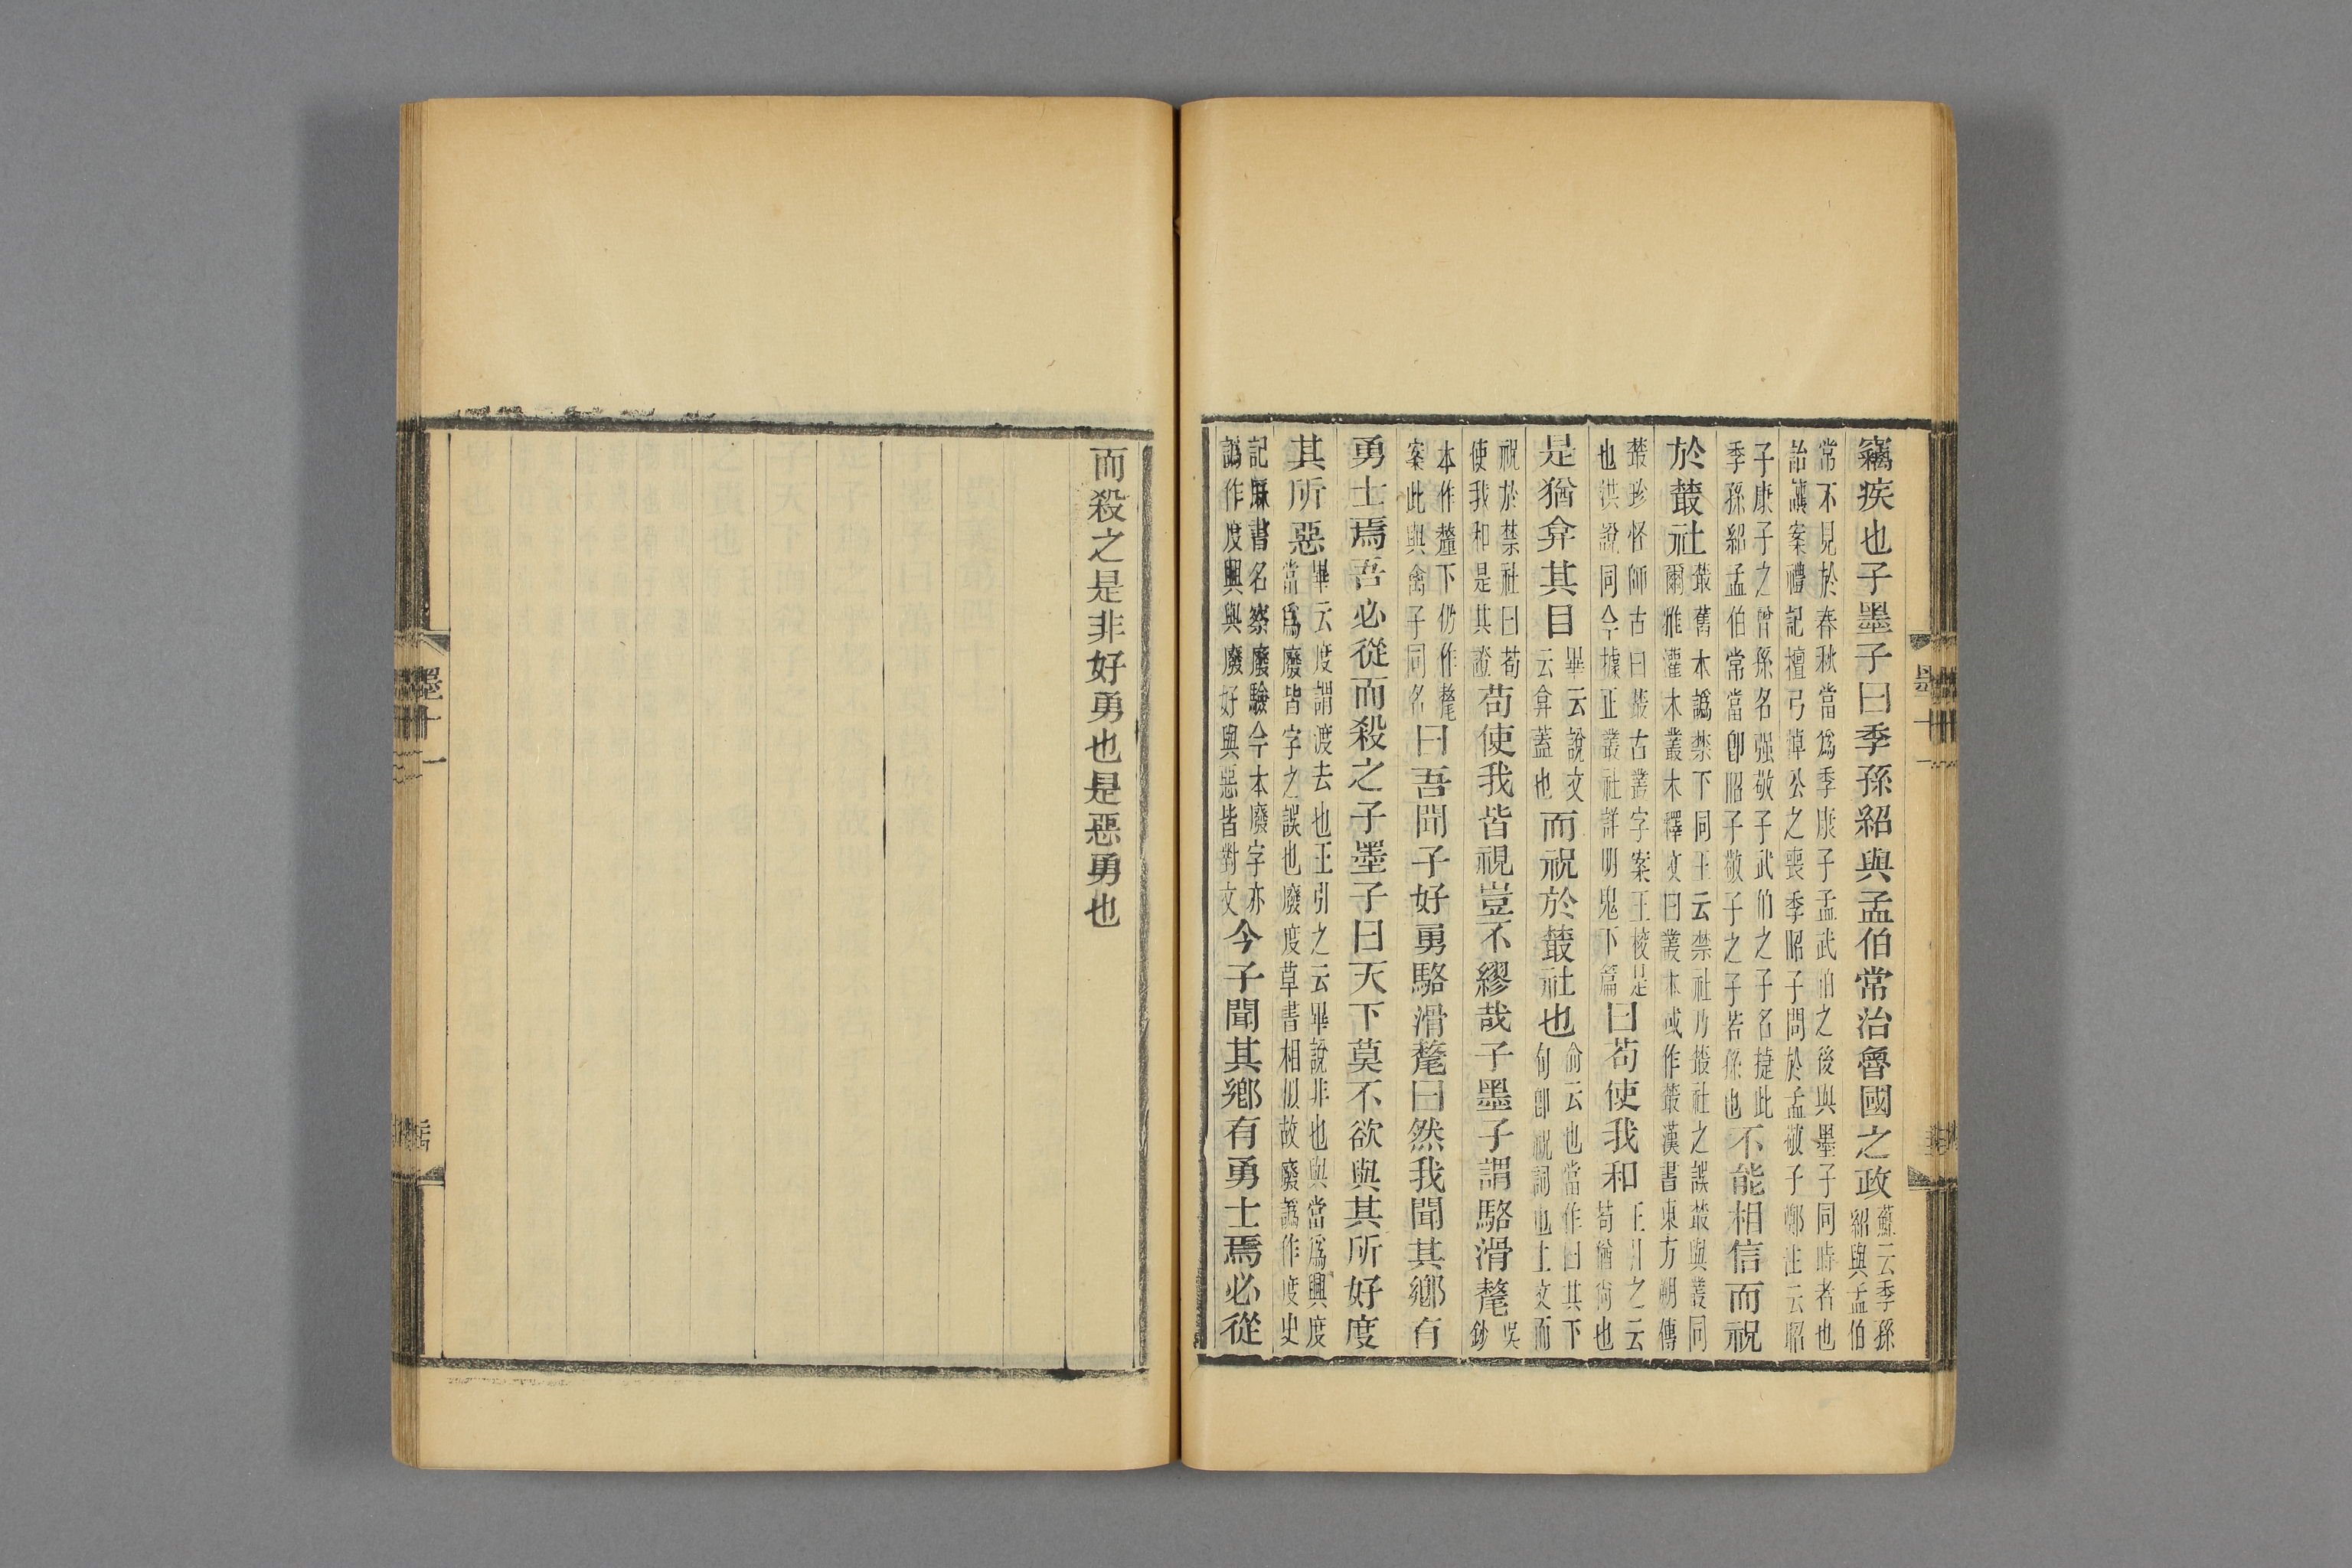 竊疾也子墨子曰季孫紹與孟伯常治魯國之政
蘇云季孫
紹與孟伯
常不見於春秋當爲季康子孟武伯之後與墨子同時者也
詒讓案禮記檀弓悼公之喪季昭子問於孟敬子鄭注云昭
子康子之曾孫名强敬子武伯之子名捷此
季孫紹孟伯常當卽昭子敬子之子若孫也
不能相信而祝
於樷社
樷舊本譌禁下同王云禁社乃樷社之誤樷與叢同
爾雅灌木叢木釋文曰叢本或作樷漢書東方朔傳
樷珍怪師古曰樷古叢字案王校是
也洪說同今據正叢社詳明鬼下篇
曰苟使我和
王引之云
苟猶尚也
是猶弇其目
畢云說文
云弇蓋也
而祝於樷社也
俞云也當作曰其下
句卽祝詞也上文而
祝於禁社曰苟
使我和是其證
苟使我皆視豈不繆哉子墨子謂駱滑氂
吳
鈔
本作釐下仍作氂
案此與禽子同名
曰吾聞子好勇駱滑氂曰然我聞其鄉有
勇士焉吾必從而殺之子墨子曰天下莫不欲與其所好度
其所惡
畢云度謂渡去也王引之云畢說非也與當爲興度
當爲廢皆字之誤也廢度草書相似故廢譌作度史
記厤書名察廢驗今本廢字亦
譌作度興與廢好與惡皆對文
今子聞其鄉有勇士焉必從
而殺之是非好勇也是惡勇也
墨十一